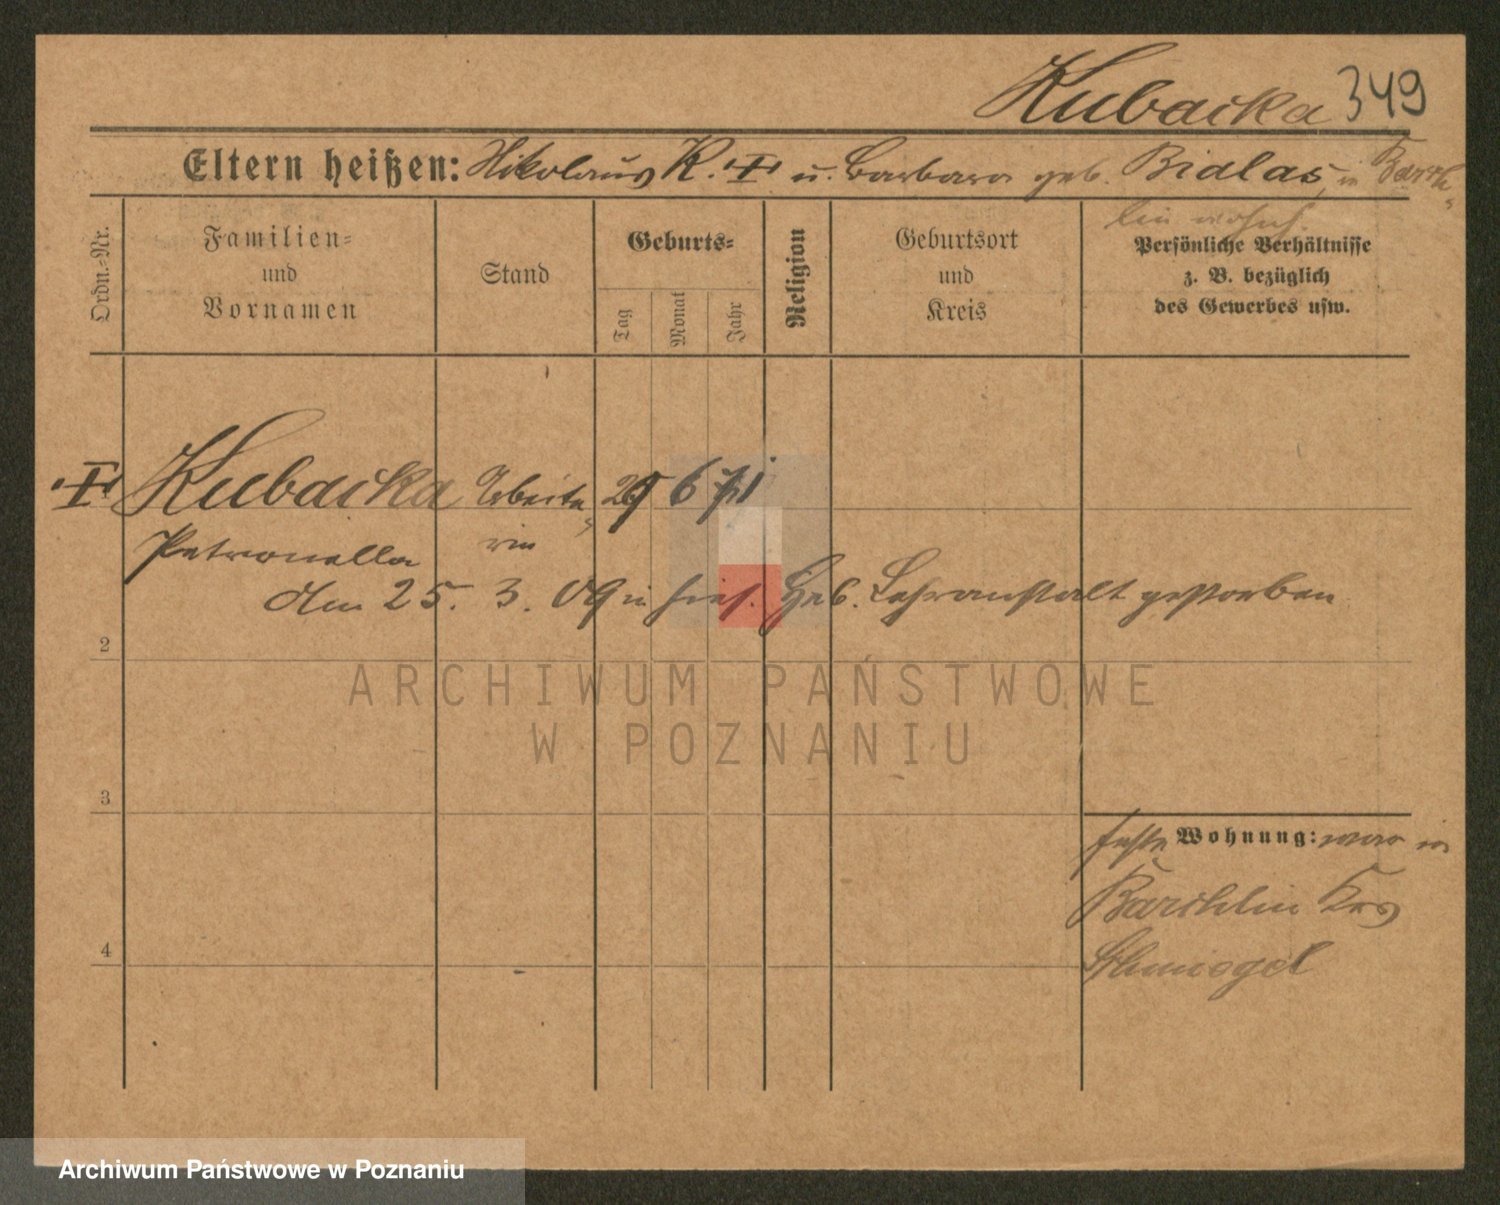 Kubacka 349
Eltern heißen: Nikolaus K. u. Barbara geb. Bialas, in Barch-
lin wohnh.
Ordn.-Nr.
Familien-
und
Vornamen
Stand
Geburts-
Tag
Monat
Jahr
Religion
Geburtsort
und
Kreis
Persönliche Verhältnisse
z. B. bezüglich
des Gewerbes usw.
1 Kubacka Arbeite- 6 71
Petronella rin
Am 25. 3. 09 in hies. Heb. Lehranstalt gestorben
2
3
4
feste Wohnung: war in
Barchlin Krs
Schmiegel
ARCHIWUM PAŃSTWOWE
W POZNANIU
Archiwum Państwowe w Poznaniu